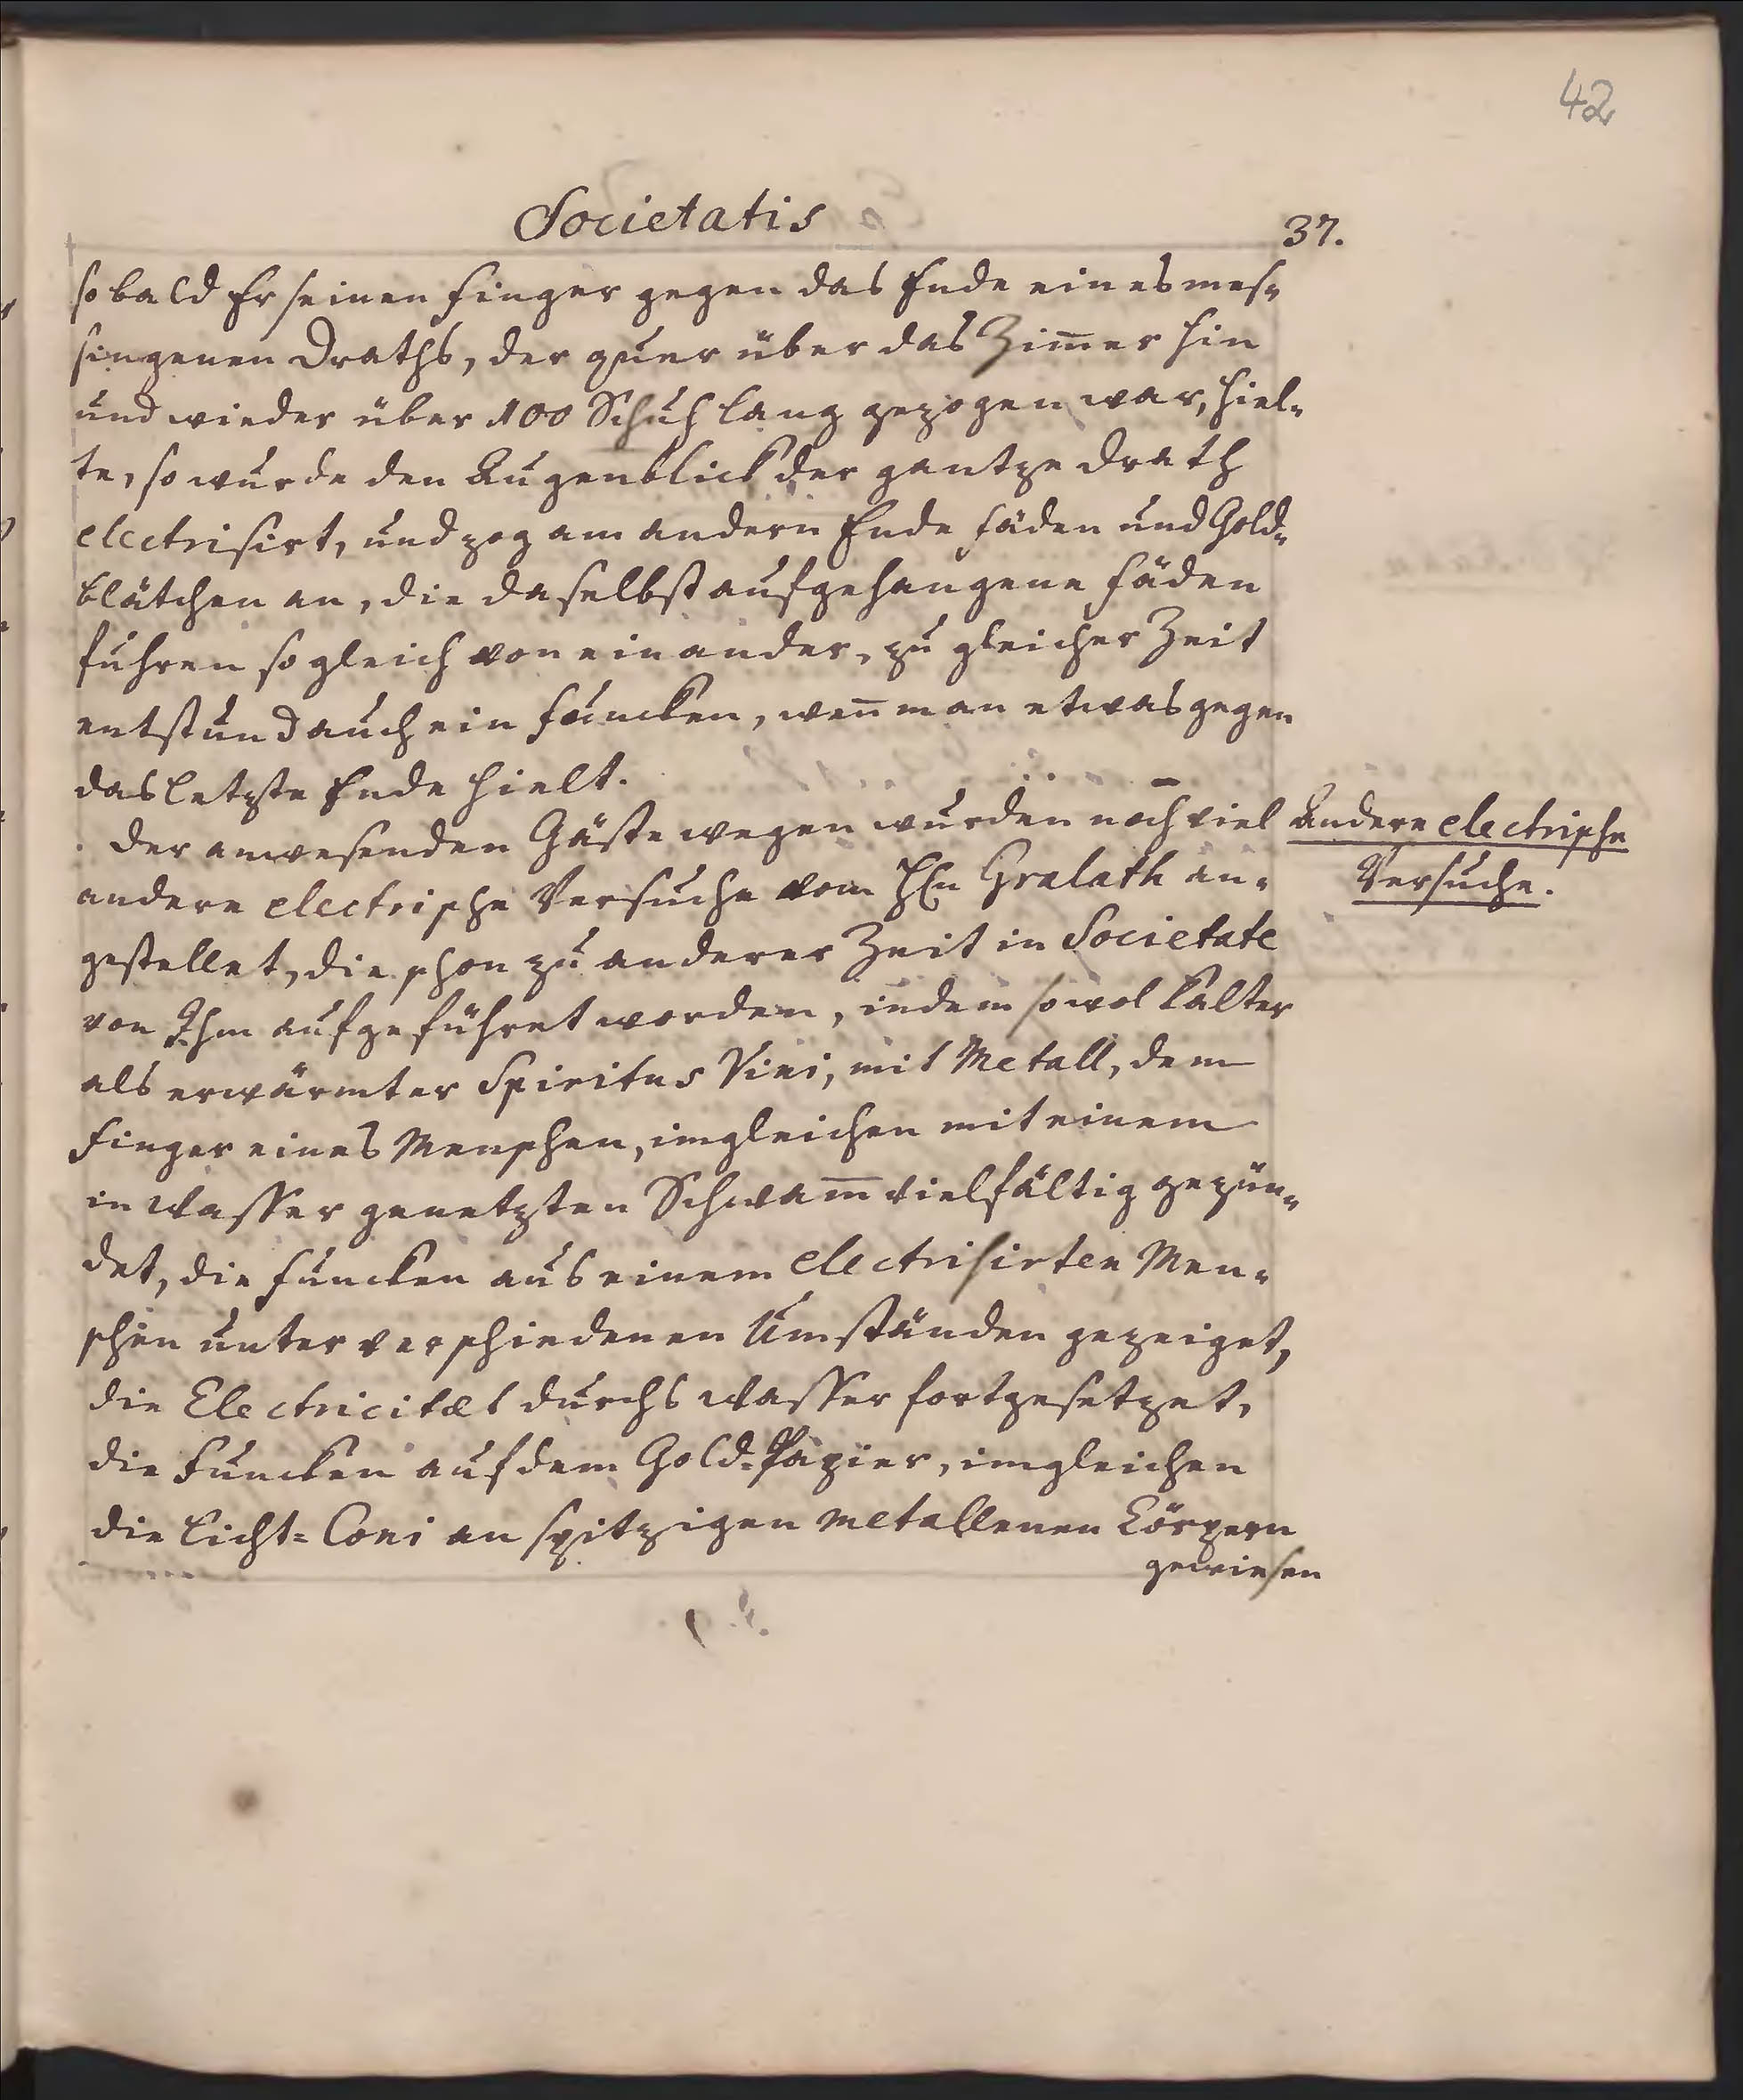 42
Societatis
37.
so bald Er seinen Finger gegen das Ende eines mes-
singenen Draths, der quer über das Zim̄er hin
und wieder über 100 Schuh lang gezogen war, hiel-
te, so wurde den Augenblick der gantze Drath
electrisirt, und zog am andern Ende Fäden und Gold-
blätchen an, die daselbst aufgehangene Fäden
fuhren so gleich von einander, zu gleicher Zeit
entstund auch ein Funcken, wen̄ man etwas gegen
das letzte Ende hielt.
Der anwesenden Gäste wegen wurden noch viel
andere electrische Versuche vom HEn Gralath an-
gestellet, die schon zu anderer Zeit in Societate
von Ihm aufgeführet worden, indem sowol kalter
als erwärmter Spiritus Vini, mit Metall, dem
Finger eines Menschen, imgleichen mit einem
in Wasser genetzten Schwam̄ vielfältig gezün-
det, die Funcken aus einem electrisirten Men-
schen unter verschiedenen Umständen gezeiget,
die Electricitæt durchs Wasser fortgesetzet,
die Funcken auf dem Gold-Papier, imgleichen
die Licht-Coni an spitzigen metallenen Cörpern
gewiesen
Andere electrische
Versuche.